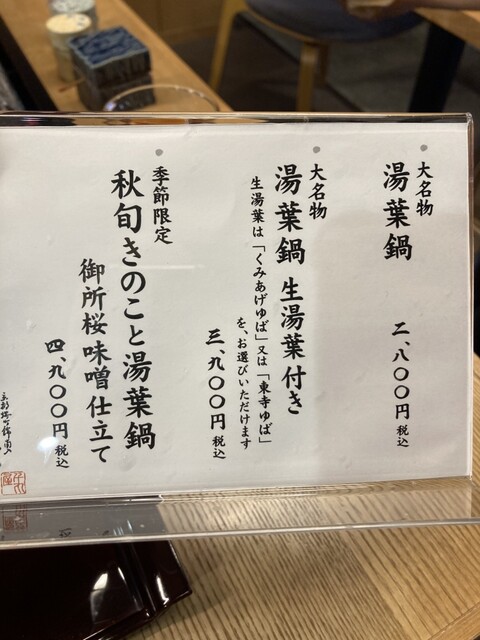 大名物
湯葉鍋
二、八〇〇円 税込
大名物
湯葉鍋 生湯葉付き
生湯葉は「くみあげゆば」又は「東寺ゆば」
を、お選びいただけます
三、九〇〇円 税込
季節限定
秋旬きのこと湯葉鍋
御所桜味噌仕立て
四、九〇〇円 税込